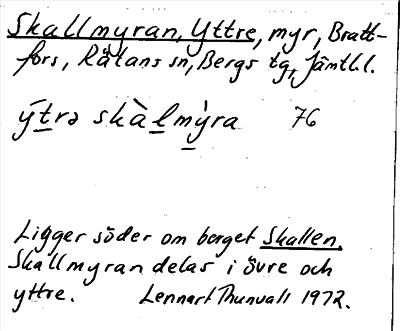 Skallmyran, Yttre, myr, Bratt-
fors, Rätans sn, Bergs tg, Jämtl. l.
ýtrə skàlmỳra 76
Ligger söder om berget Skallen.
Skallmyran delas i övre och
yttre. Lennart Thunvall 1972.